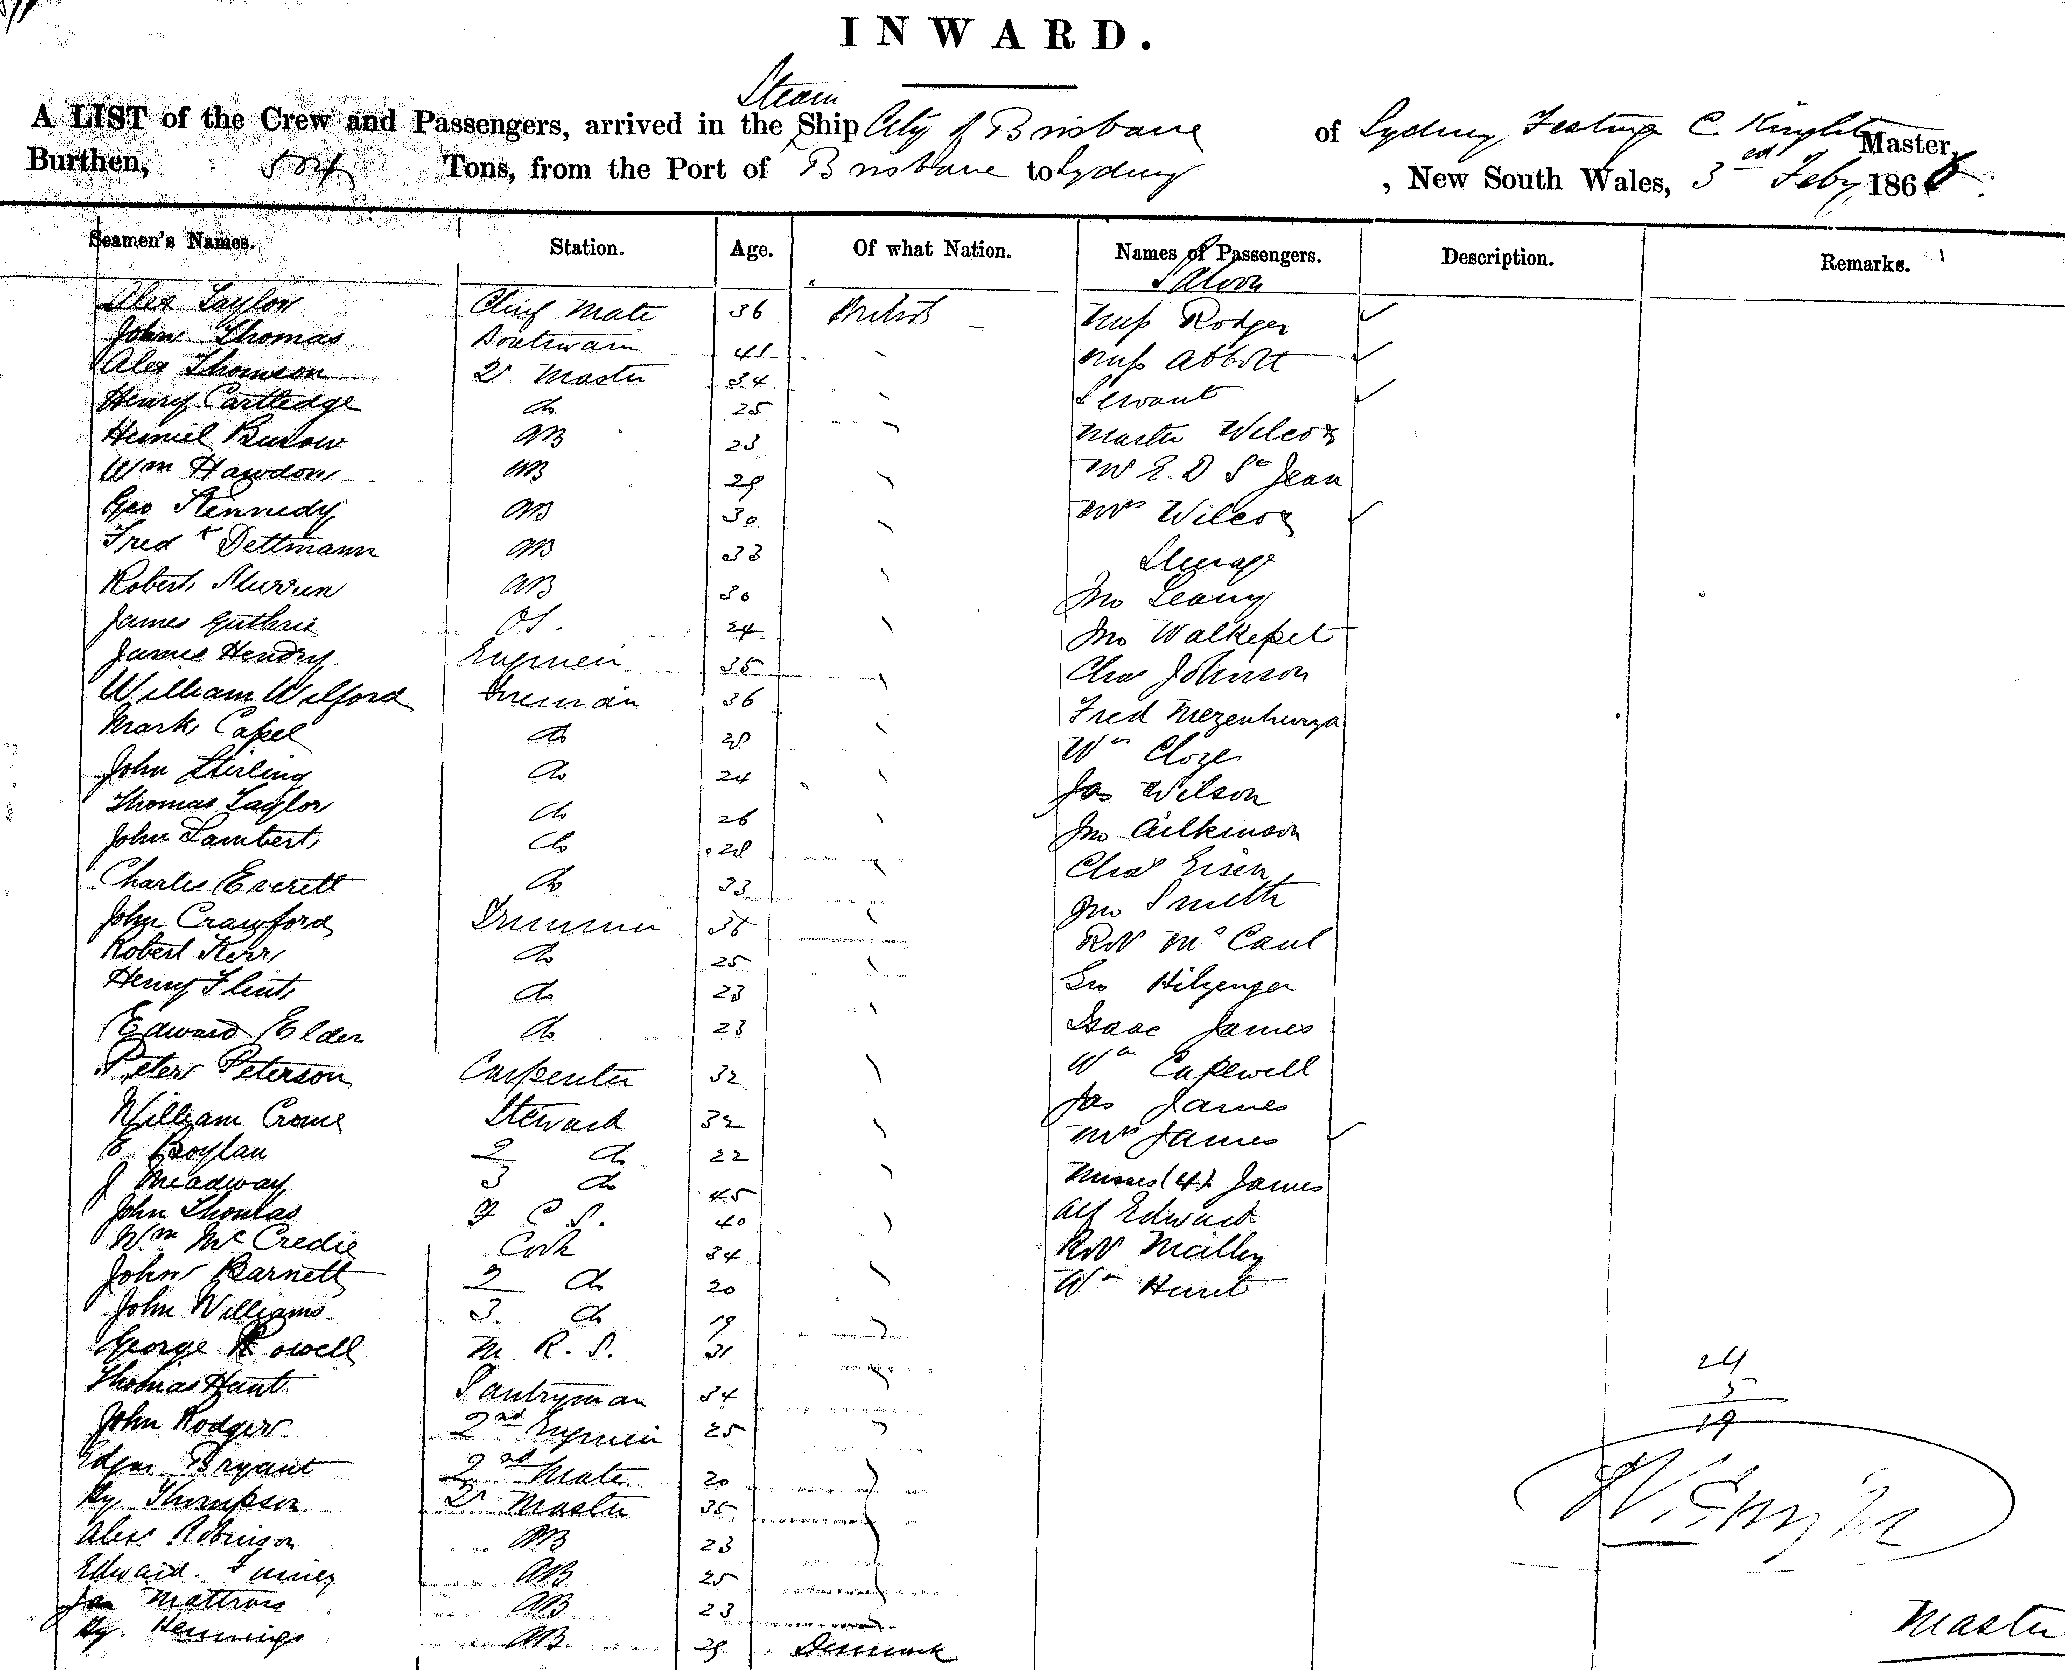 INWARD.
A LIST of the Crew and Passengers, arrived in the Steam Ship City of Brisbane of Sydney C. Knight Master,
Burthen, 504 Tons, from the Port of Brisbane to Sydney, New South Wales, 3rd Feby 1866.
Seamen's Names. Station. Age. Of what Nation. Names of Passengers. Description. Remarks.
Saloon
Alex Taylor Chief Mate 36 British Miss Rodger
John Thomas Boatswain 41 Miss Abbott
Alex Thomson Qr Master 34 Servant
Henry Cartledge do 25 Master Wilcox
AB 23 Mr E. D St Jean
Wm Hawdon AB 29 Mrs Wilcox
Geo Kennedy AB 30 Steerage
Fredk Dettmann AB 33 Jno Leary
Robert AB 30 Jno
James Guthrie OS. 24 Chas Johnson
James Hendry Engineer 35 Fred
William Wilford Fireman 36 Wm Cloze
Mark Capel do 28 Jas Wilson
John Stirling do 24 Jno
Thomas Taylor do 26 Chas Eisen
John Lambert do 28 Jno Smith
Charles Everett do 33 Robt McCaul
John Crawford Trimmer 36 Geo Hilzenger
Robert Kerr do 25 Isaac James
Henry Flint do 23 Wm Capewell
Edward Elder do 23 Jas James
Peter Peterson Carpenter 32 Mrs James
William Crane Steward 32 Misses (4) James
E Boylan 2 do 22 Alf Edward
J Meadway 3 do 45 Robt
John Thomas F C S. 40 Wm Hunt
Wm McCredie Cook 34
John Barnett 2 do 20
John Williams 3. do 19
George Rowell M. R. S. 31
Thomas Hunt Pantryman 34
John Rodger 2nd Engineer 25
Edgar Bryant 2nd Mate 20
Hy Thompson Qr Master 35
Alex Robinson AB 23
Edward AB 25
Jas Mattross AB 23
Hy. Hennings AB 29 Denmark
24
5
19
Master